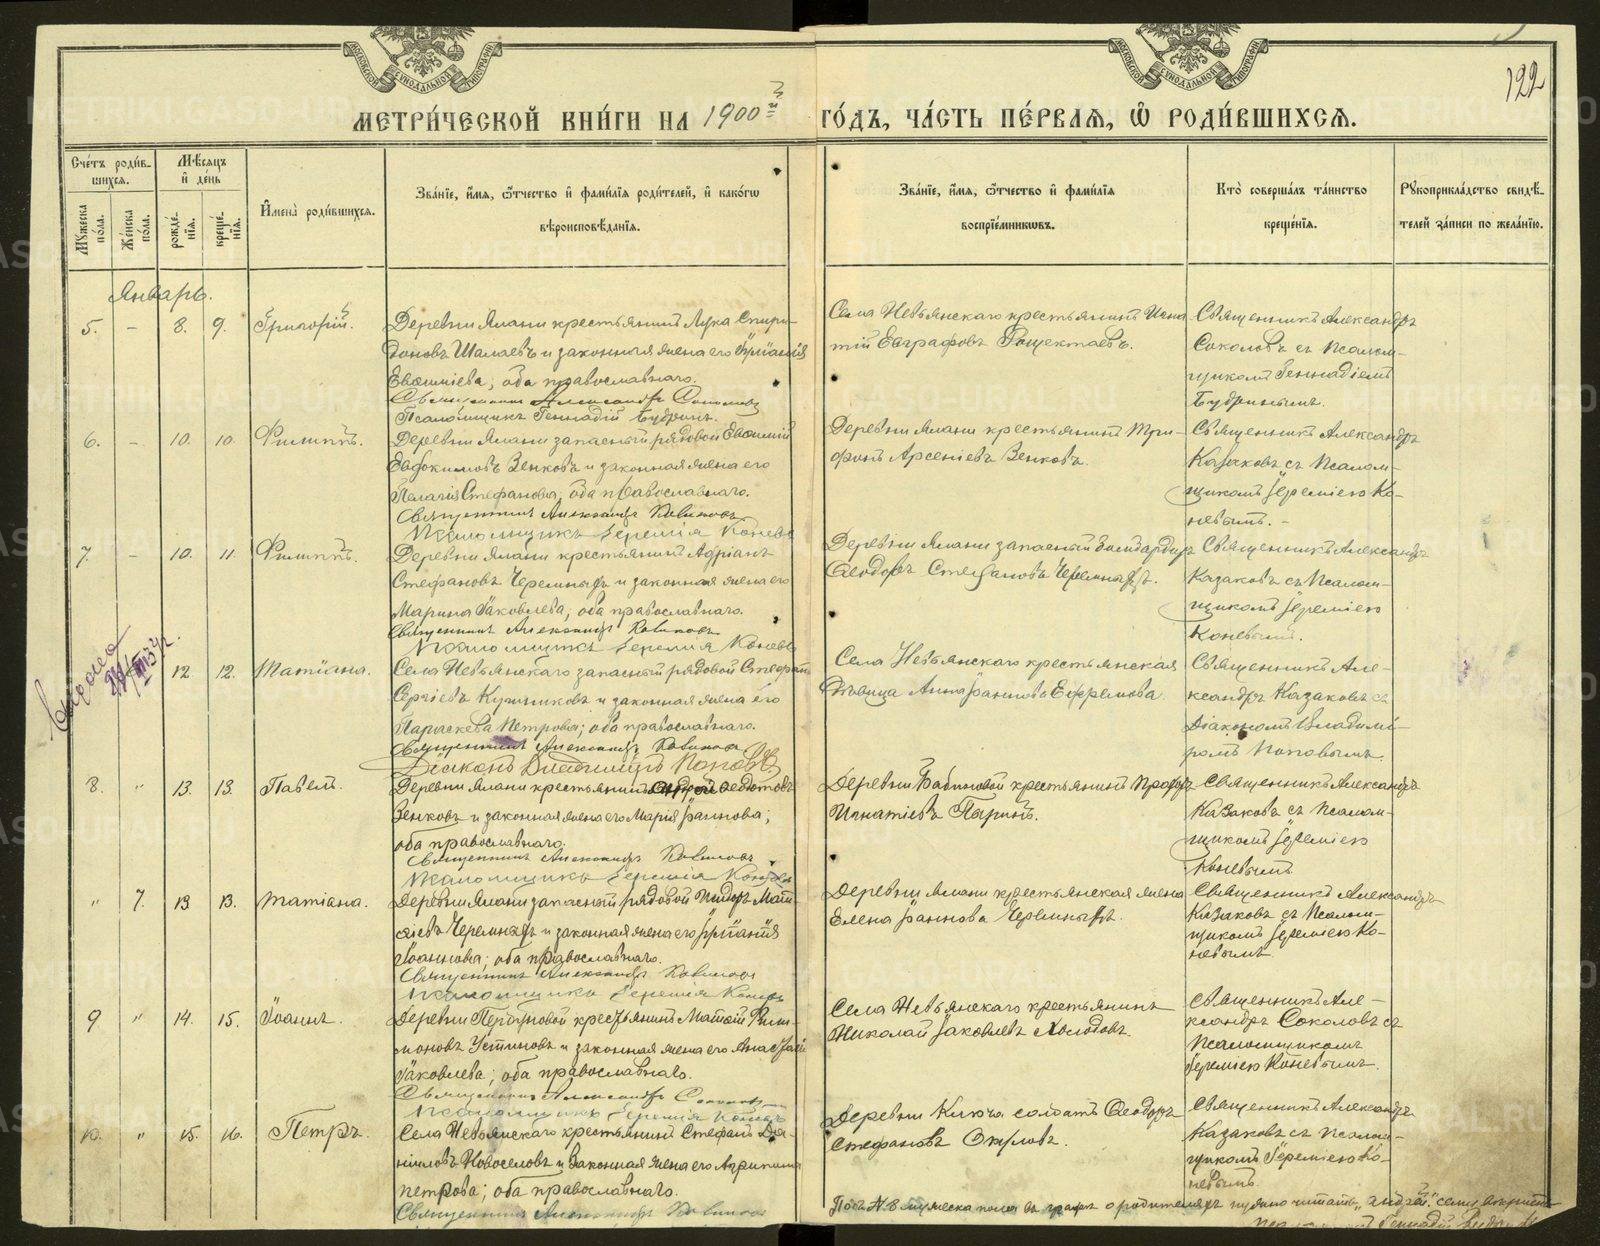 122
МОСКОВСКОЙ СѴНОДАЛЬНОЙ ТИПОГРАФІИ
МОСКОВСКОЙ СѴНОДАЛЬНОЙ ТИПОГРАФІИ
МЕТРИ́ЧЕСКОЙ КНИ́ГИ НА 1900й ГО́ДЪ, ЧА́СТЬ ПЕ́РВАѦ, Ѽ РОДИ́ВШИХСѦ.
Сче́тъ роди́вшихсѧ.
Мꙋ́жеска по́ла.
Же́нска по́ла.
Мѣ́сѧцъ и҆ де́нь
рожде́нїѧ.
креще́нїѧ.
И҆мена̀ роди́вшихсѧ.
Зва́нїе, и҆́мѧ, ѻ҆́тчество и҆ фами́лїѧ роди́телей, и҆ како́гѡ
вѣроисповѣ́данїѧ.
Зва́нїе, и҆́мѧ, ѻ҆́тчество и҆ фами́лїѧ
воспрїе́мникѡвъ.
Кто̀ соверша́лъ та́инство
креще́нїѧ.
Рꙋкоприкла́дство свидѣ́-
телей за́писи по жела́нїю.
Январь.
5. – 8. 9. Григорій.
Деревни Ялани крестьянинъ Лука Спири-
доновъ Шалаевъ и законная жена его
Евѳиміева, оба православнаго.
Священникъ Александръ Соколовъ
Псаломщикъ Геннадій Будринъ.
Села Невьянскаго крестьянинъ Игна
тій Евграфовъ
Священникъ Александръ
Соколовъ съ Псалом-
щикомъ Геннадіемъ
Будринымъ.
6. – 10. 10. Филиппъ.
Деревни Ялани запасный рядовой Евѳимій
Евдокимовъ Зенковъ и законная жена его
Пелагія Стефанова, оба православнаго.
Священникъ Александръ Казаковъ
Псаломщикъ Іеремія Коневъ
Деревни Ялани крестьянинъ Три-
фонъ Арсеніевъ Зенковъ.
Священникъ Александръ
Казаковъ съ Псалом-
щикомъ Іереміею Ко-
невымъ. –
7. – 10. 11. Филиппъ.
Деревни Ялани крестьянинъ Адріанъ
Стефановъ Черемныхъ и законная жена его
Марина Іаковлева, оба православнаго.
Священникъ Александръ Казаковъ
Псаломщикъ Іеремія Коневъ
Деревни Ялани запасный Бомбардиръ
Ѳеодоръ Стефановъ Черемныхъ.
Священникъ Александръ
Казаковъ съ Псалом-
щикомъ Іереміею
Коневымъ.
12. 12. Татіана.
Села Невьянскаго запасный рядовой Стефанъ
Сергіевъ и законная жена его
Параскева Петрова; оба православнаго.
Священникъ Александръ Казаковъ
Діаконъ Владиміръ Поповъ
Села Невьянскаго крестьянская
дѣвица Анна Іоаннова Ефремова
Священникъ Але-
ксандръ Казаковъ съ
Діакономъ Владимі-
ромъ Поповымъ.
8. " 13. 13. Павелъ.
Деревни Ялани крестьянинъ
Зенковъ и законная жена его Марія Іоаннова;
оба православнаго.
Священникъ Александръ Казаковъ
Псаломщикъ Іеремія Коневъ
Деревни Бабиновой крестьянинъ
Игнатіевъ Паринъ.
Священникъ Александръ
Казаковъ съ Псалом-
щикомъ Іереміею
Коневымъ
" 7. 13. 13. Татіана.
Деревни Ялани запасный рядовой Исидоръ Мат-
ѳіевъ Черемныхъ и законная жена его
Іоаннова; оба православнаго.
Священникъ Александръ Казаковъ
Псаломщикъ Іеремія Коневъ
Деревни Ялани крестьянская жена
Елена Іоаннова Черемныхъ.
Священникъ Александръ
Казаковъ съ Псалом-
щикомъ Іереміею Ко-
невымъ
9 " 14. 15. Іоаннъ.
крестьянинъ Матѳій Фили-
моновъ Устиновъ и законная жена его
Іаковлева; оба православнаго.
Священникъ Александръ Соколовъ
Псаломщикъ Іеремія Коневъ
Села Невьянскаго крестьянинъ
Николай Іаковлевъ Холодовъ.
Священникъ Але-
ксандръ Соколовъ съ
Псаломщикомъ
Іереміею Коневымъ.
10. " 15. 16. Петръ.
Села Невьянскаго крестьянинъ Стефанъ Да-
ніиловъ Новоселовъ и законная жена его Агрипина
Петрова; оба православнаго.
Священникъ Александръ Казаковъ
Деревни Ключа солдатъ Ѳеодоръ
Стефановъ Окуловъ.
Священникъ Александръ
Казаковъ съ Псалом-
щикомъ Іереміею Ко-
невымъ.
Подъ № 8 мужеска пола въ графѣ о родителяхъ нужно читать: "Андрей"